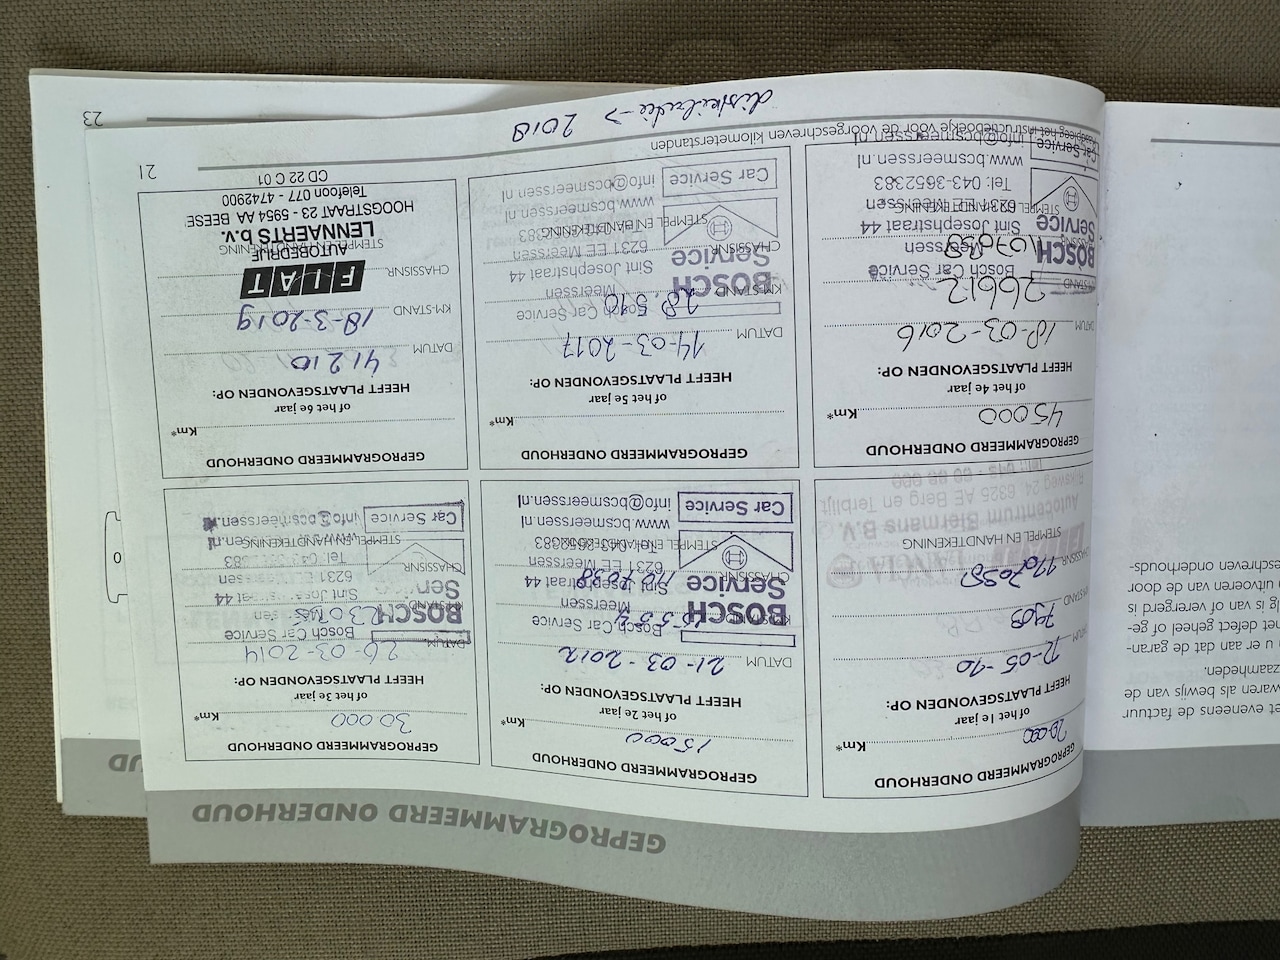 GEPROGRAMMEERD ONDERHOUD
GEPROGRAMMEERD ONDERHOUD
20.000 Km*
of het 1e jaar
HEEFT PLAATSGEVONDEN OP:
12-05-10
7903
CHASSISNR
STEMPEL EN HANDTEKENING
Autocentrum Biermans B.V.
Rijksweg 24, 6325 AE Berg en Terblijt
GEPROGRAMMEERD ONDERHOUD
15000 Km*
of het 2e jaar
HEEFT PLAATSGEVONDEN OP:
DATUM 21-03-2012
BOSCH
Service
Car Service
Bosch Car Service
Meerssen
Sint Josephstraat 44
6231 EE Meerssen
Tel: 043-3652383
www.bcsmeerssen.nl
info@bcsmeerssen.nl
GEPROGRAMMEERD ONDERHOUD
30.000 Km*
of het 3e jaar
HEEFT PLAATSGEVONDEN OP:
DATUM 26-03-2014
BOSCH
Car Service
Bosch Car Service
STEMPEL EN HANDTEKENING
GEPROGRAMMEERD ONDERHOUD
45000 Km*
of het 4e jaar
HEEFT PLAATSGEVONDEN OP:
DATUM 18-03-2016
26612
107088
BOSCH
Service
Car Service
Bosch Car Service
Meerssen
Sint Josephstraat 44
6231 EE Meerssen
Tel: 043-3652383
www.bcsmeerssen.nl
info@bcsmeerssen.nl
GEPROGRAMMEERD ONDERHOUD
Km*
of het 5e jaar
HEEFT PLAATSGEVONDEN OP:
DATUM 14-03-2017
KM-STAND 28.510
CHASSISNR
STEMPEL EN HANDTEKENING
BOSCH
Service
Car Service
Bosch Car Service
Meerssen
Sint Josephstraat 44
6231 EE Meerssen
www.bcsmeerssen.nl
info@bcsmeerssen.nl
GEPROGRAMMEERD ONDERHOUD
Km*
of het 6e jaar
HEEFT PLAATSGEVONDEN OP:
DATUM 41210
KM-STAND 18-3-2019
CHASSISNR
FIAT
AUTOBEDRIJF
STEMPEL EN HANDTEKENING
LENNAERTS b.v.
HOOGSTRAAT 23 - 5954 AA BEESE
Telefoon 077 - 4742900
CD 22 C 01
Raadpleeg het instructieboekje voor de voorgeschreven kilometerstanden
21
distributie -> 2018
23
UD
et eveneens de factuur
waren als bewijs van de
zaamheden.
u er aan dat de garan-
het defect geheel of ge-
lg is van of verergerd is
uitvoeren van de door
eschreven onderhouds-